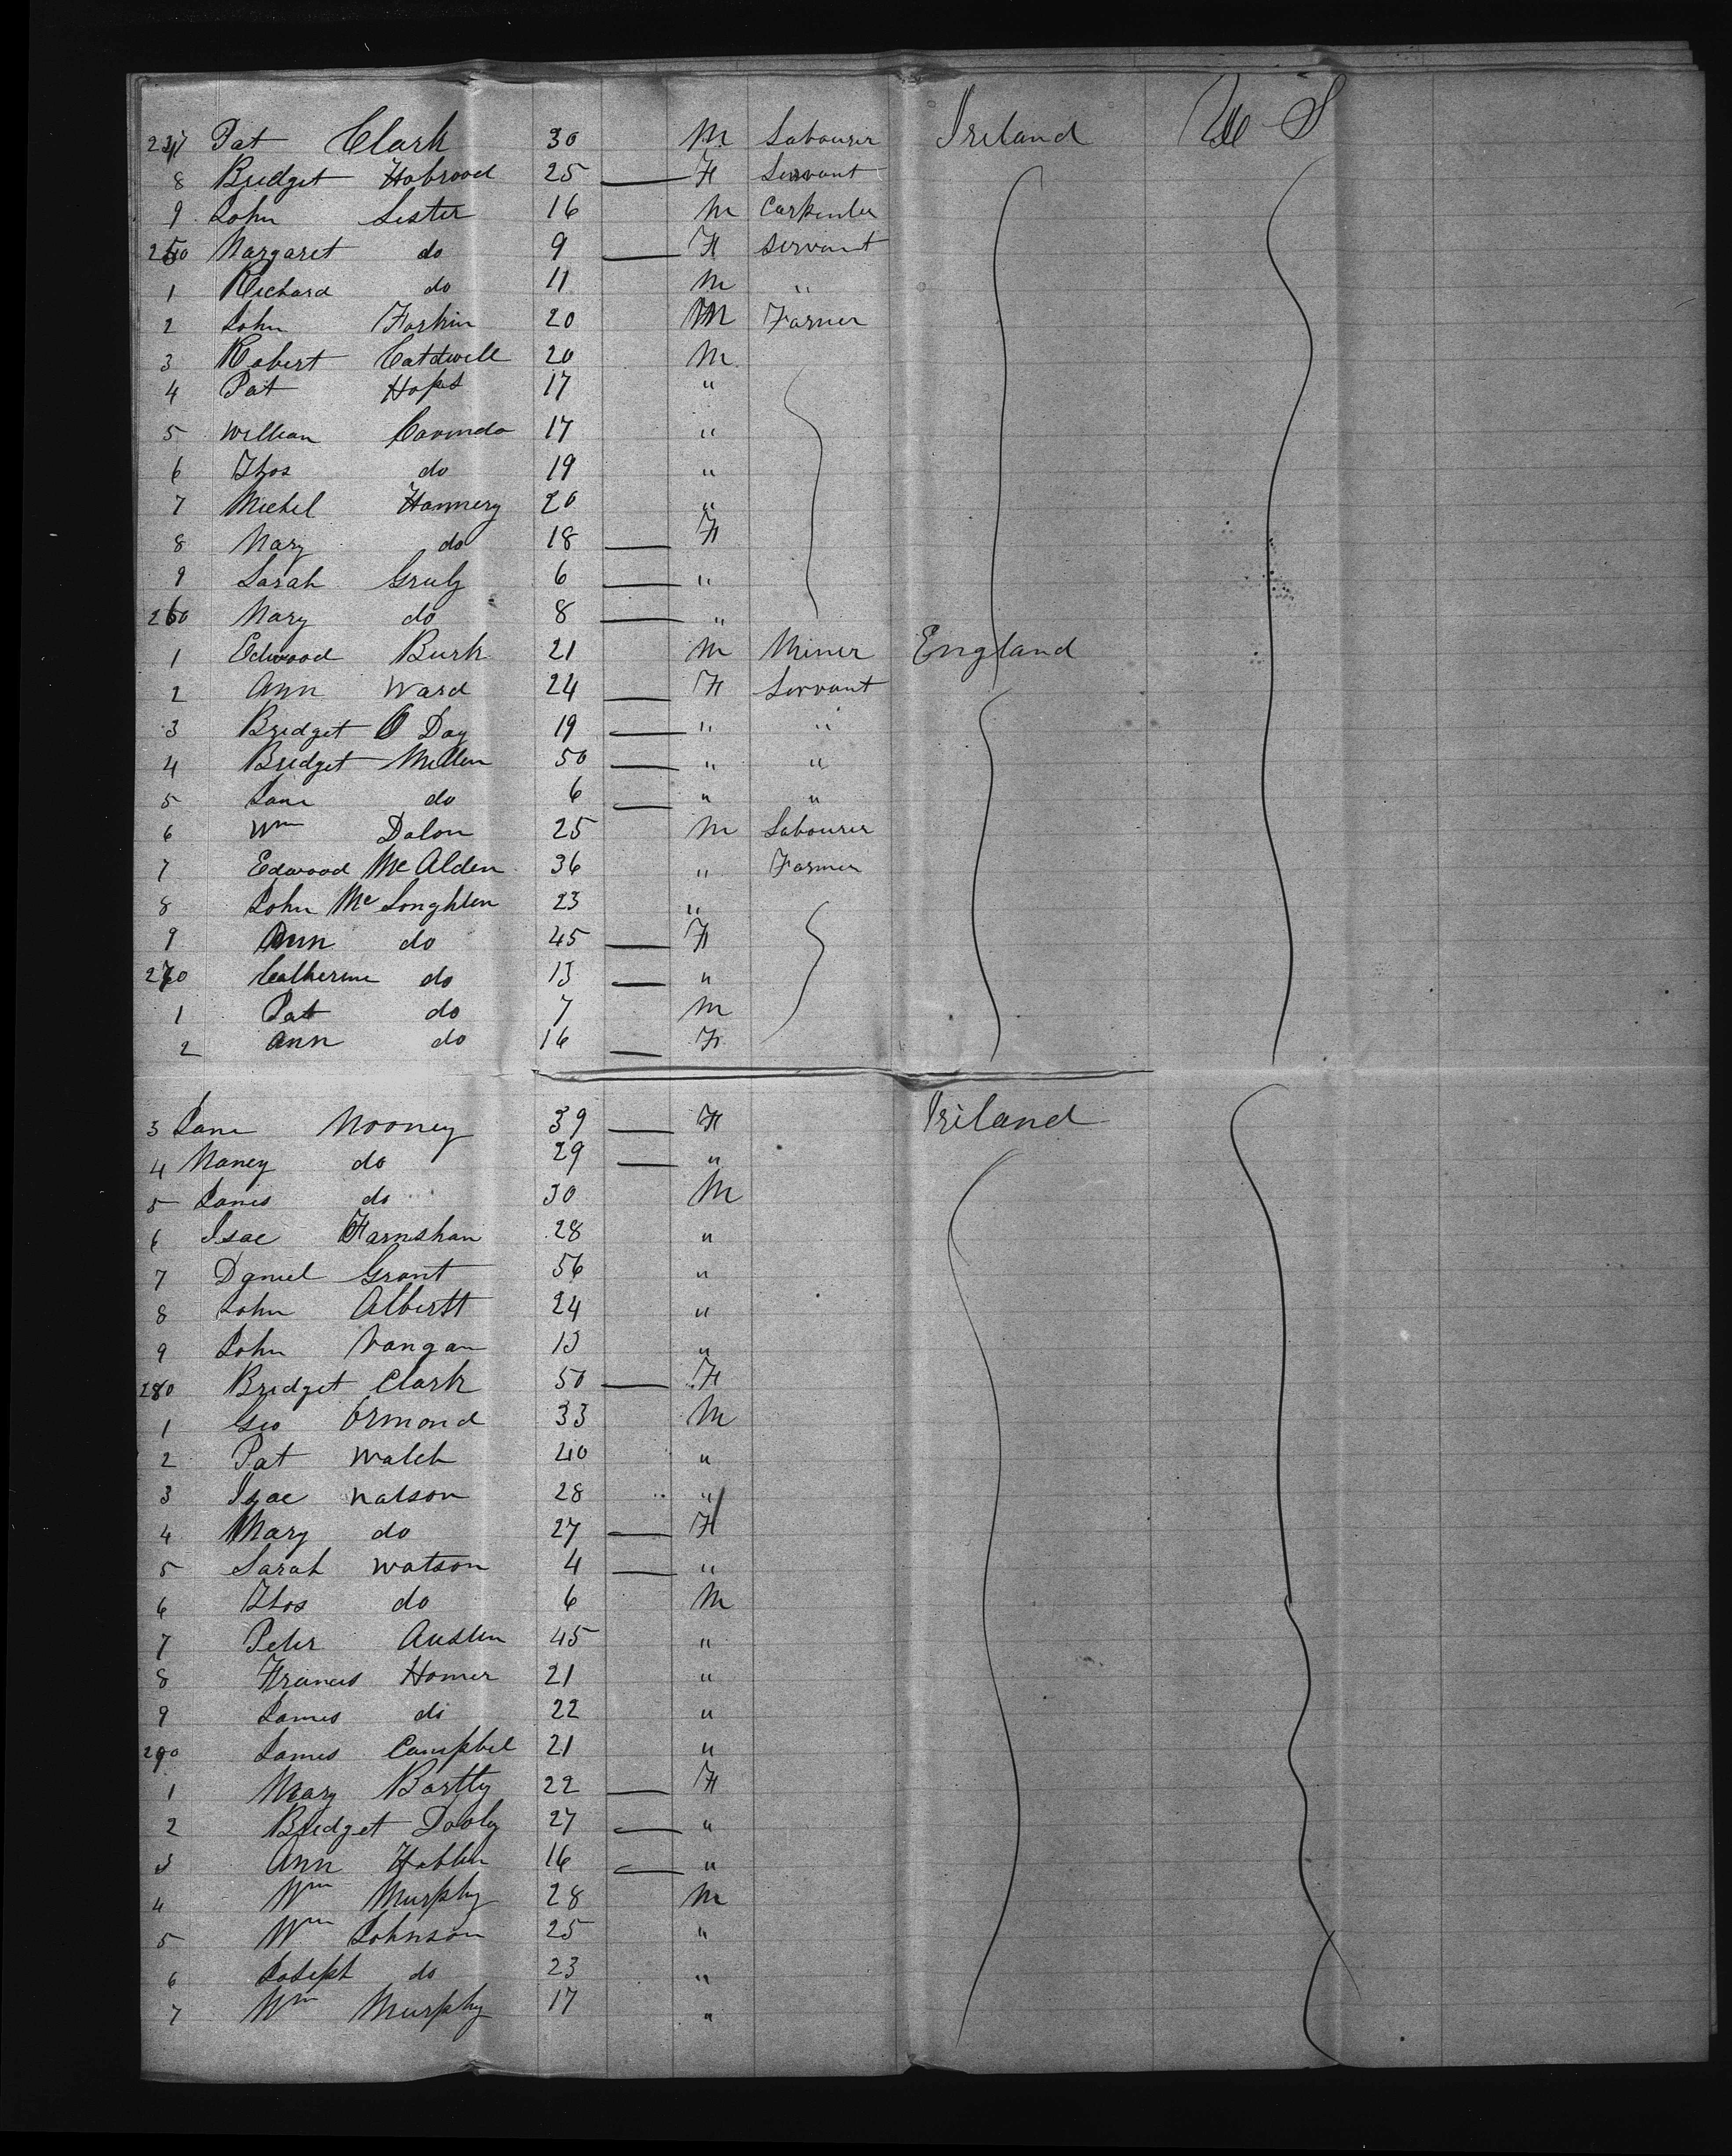 247 Pat Clark 30 M Labourer Ireland U S
8 Bridget Habrood 25 F Servant
9 John Lester 16 M Carpenter
250 Margaret do 9 F Servant
1 Richard do 11 M "
2 John Farkin 20 M Farmer
3 Robert Catdwell 20 M
4 Pat Hops 17 "
5 William Cavinda 17 "
6 Thos do 19 "
7 Michel Hannery 20 "
8 Mary do 18 F
9 Sarah Gruly 6 "
260 Mary do 8 "
1 Edwood Burk 21 M Miner England
2 Ann Ward 24 F Servant
3 Bridget O Day 19 " "
4 Bridget Millen 50 " "
5 Jane do 6 " "
6 Wm Dalon 25 M Labourer
7 Edwood McAlden 36 " Farmer
8 John McLoughlen 23 "
9 Ann do 45 F
270 Catherine do 13 "
1 Pat do 7 M
2 Ann do 16 F
3 Jane Mooney 39 F Ireland
4 Nancy do 29 "
5 James do 30 M
6 Isac Farnshan 28 "
7 Daniel Grant 56 "
8 John Albertt 24 "
9 John Vangan 13 "
280 Bridget Clark 50 F
1 Geo Ormond 33 M
2 Pat Walch 40 "
3 Isac Watson 28 "
4 Mary do 27 F
5 Sarah Watson 4 "
6 Thos do 6 M
7 Peter Austen 45 "
8 Francis Homer 21 "
9 James do 22 "
290 James Campbel 21 "
1 Mary Bartly 22 F
2 Bridget Dooly 27 "
3 Ann Hablen 16 "
4 Wm Murphy 28 M
5 Wm Johnson 25 "
6 Joseph do 23 "
7 Wm Murphy 17 "